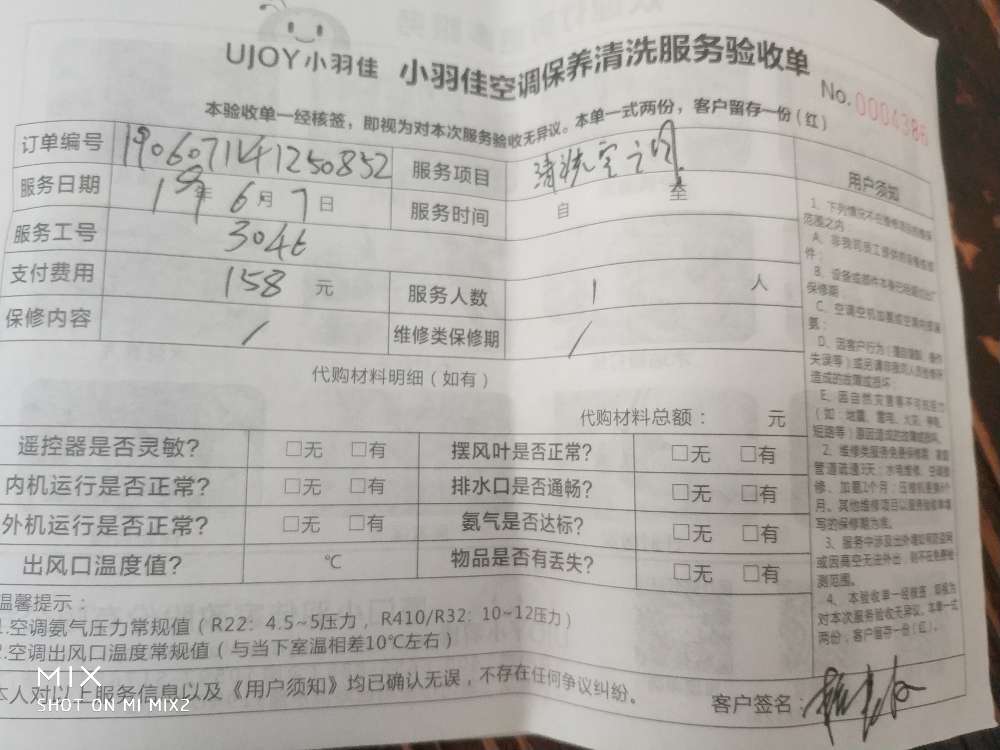 UJOY小羽佳 小羽佳空调保养清洗服务验收单
No.0004386
本验收单一经核签，即视为对本次服务验收无异议。本单一式两份，客户留存一份（红）
订单编号 190607141250852 服务项目 清洗空调
服务日期 19年6月7日 服务时间 自 至
服务工号 3046
支付费用 158 元 服务人数 1 人
保修内容 / 维修类保修期 /
代购材料明细（如有）
代购材料总额： 元
遥控器是否灵敏? □无 □有 摆风叶是否正常? □无 □有
内机运行是否正常? □无 □有 排水口是否通畅? □无 □有
外机运行是否正常? □无 □有 氨气是否达标? □无 □有
出风口温度值? ℃ 物品是否有丢失? □无 □有
温馨提示：
1.空调氨气压力常规值（R22：4.5~5压力，R410/R32：10~12压力）
2.空调出风口温度常规值（与当下室温相差10℃左右）
本人对以上服务信息以及《用户须知》均已确认无误，不存在任何争议纠纷。
客户签名：
用户须知
1、下列情况不在维修类
范围之内
B、设备或部件本身已
保修期
C、空调空机加氨或空调
氨；
D、因客户行为
失误等）或另请非我司人员
造成的故障或损坏
E、因自然灾害等不可抗拒力
（如：地震、雷电、火灾、
短路等）原因造成的故障或损坏。
2、维修类服务免费保修期：
管道疏通3天；水电维修、空调维
修、加氨2个月；压缩机更换6个
月。其他维修项目以服务验收单填
写的保修期为准。
3、服务中涉及出外墙如有防盗网
或因高空无法外出，则不在免费检
测范围。
4、本验收单一经核签，即视为
对本次服务验收无异议。本单一式
两份，客户留存一份（红）。
MIX
SHOT ON MI MIX2